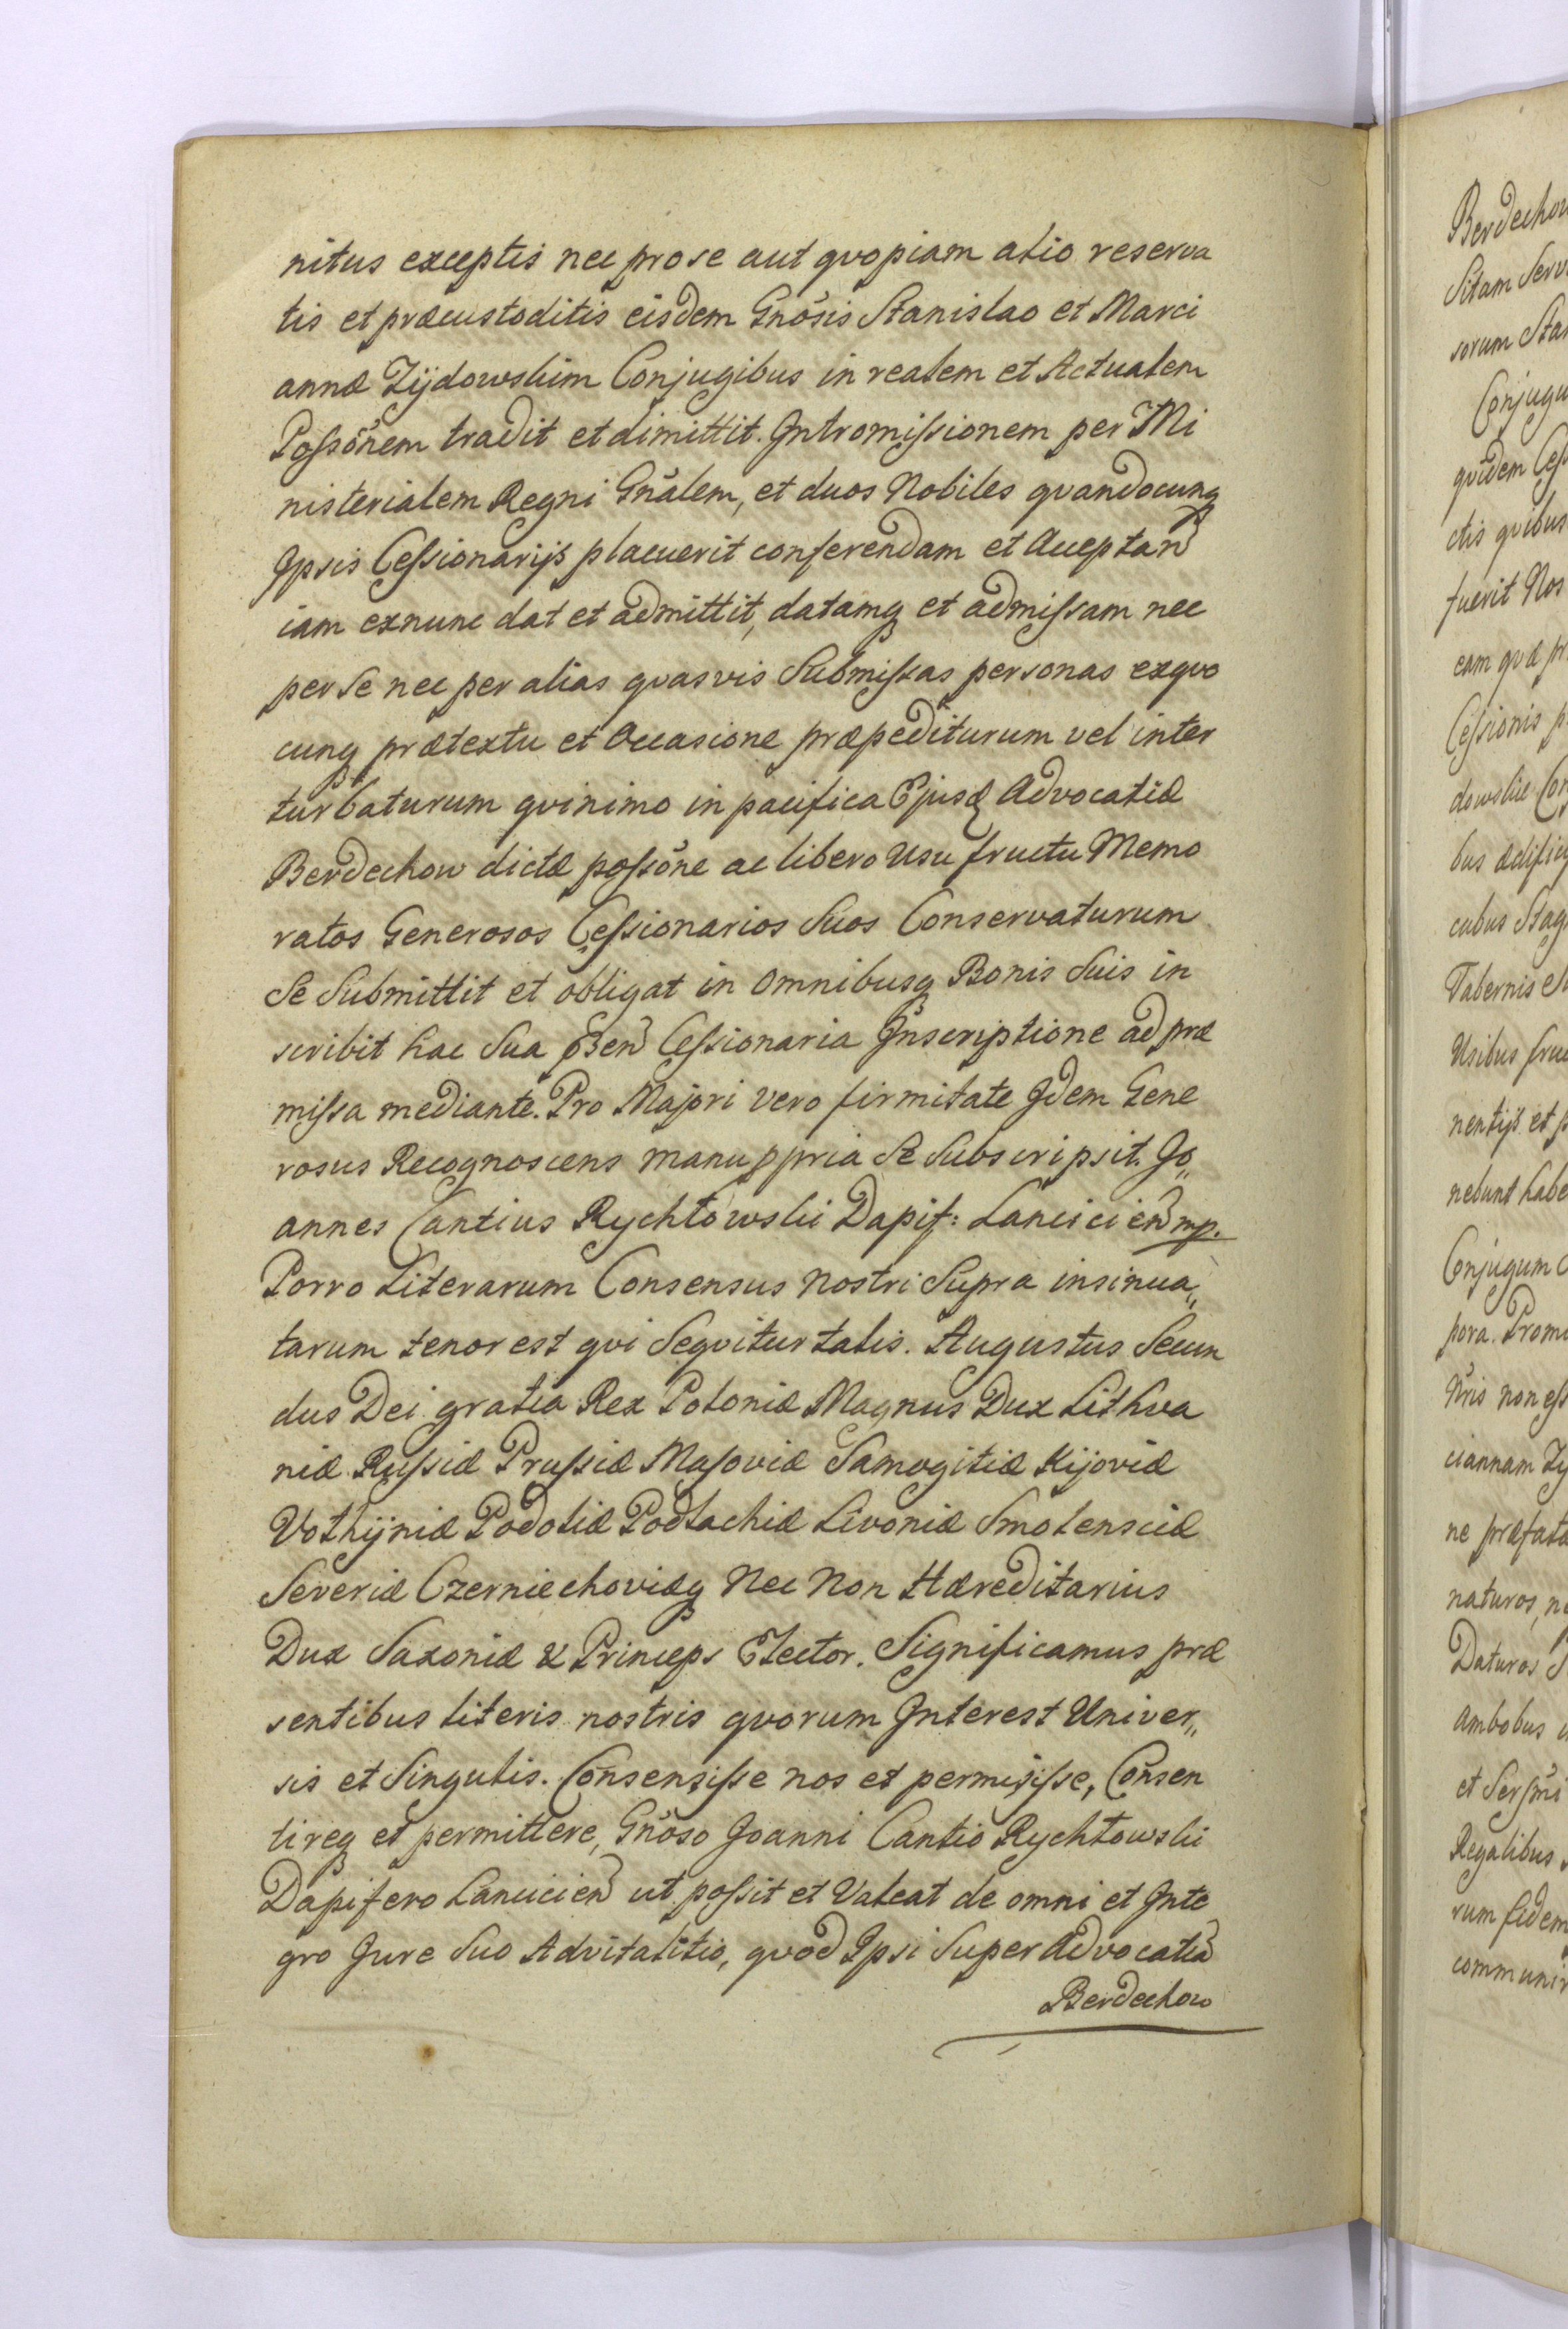 nitus exceptis nec pro se aut qvopiam alio reserva
tis et præcustoditis eisdem Gnõsis Stanislao et Marci
annæ Zÿdowskim Conjugibus in realem et Actualem
Poſsõnem tradit et dimittit. Intromiſsionem per Mi
nisterialem Regni Gnãlem, et duos Nobiles qvandocunq
Ipsis Ceſsionarijs placuerit conferendam et Acceptan
iam exnunc dat et admittit, datamq et admiſsam nec
per se nec per alias qvasvis Submiſsas personas exqvo
cunq prætextu et Occasione præpediturum vel inter
turbaturum qvinimo in pacifica Ejusd Advocatiæ
Berdechow dictæ poſsõne ac libero Usu fructu Memo
ratos Generosos Ceſsionarios Suos Conservaturum
Se Submittit et obligat in Omnibusq Bonis Suis in
scribit hac Sua pñen Ceſsionaria Inscriptione ad præ
miſsa mediante. Pro Majori vero firmitate Idem Gene
rosus Recognoscens manu ppria Se Subscripsit. Jo„
annes Cantius Rychłowski Dapif: Lancicien mp.
Porro Literarum Consensus Nostri Supra insinua„
tarum tenor est qvi Seqvitur talis. Augustus Secun
dus Dei gratia Rex Poloniæ Magnus Dux Lithva
niæ Ruſsiæ Pruſsiæ Maſoviæ Samogitiæ Kijoviæ
Volhÿniæ Podoliæ Podlachiæ Livoniæ Smolensciæ
Severiæ Czerniechoviæq Nec Non Hæreditarius
Dux Saxoniæ & Princeps Elector. Significamus præ
sentibus literis nostris qvorum Interest Univer„
sis et Singulis. Consensiſse nos et permisiſse, Consen
tireq et permittere, Gnõso Joanni Cantio Rychłowski
Dapifero Lancicien ut poſsit et Valeat de omni et Inte
gro Jure Suo Advitalitio, qvod Ipsi Super Advocatia
Berdechow
Berdechow
Sitam
sorum
Conjugu
qvidem
ctis qvibus
fuerit Nos
eam qvæ
Ceſsionis
dowskie
bus
cubus
Tabernis
Usibus
nentijs et
nebunt habe
Conjugum
pora.
Nris non eſs
ciannam
ne præfata
naturos,
Daturos
Ambobus
et
Regalibus
rum fidem
communi